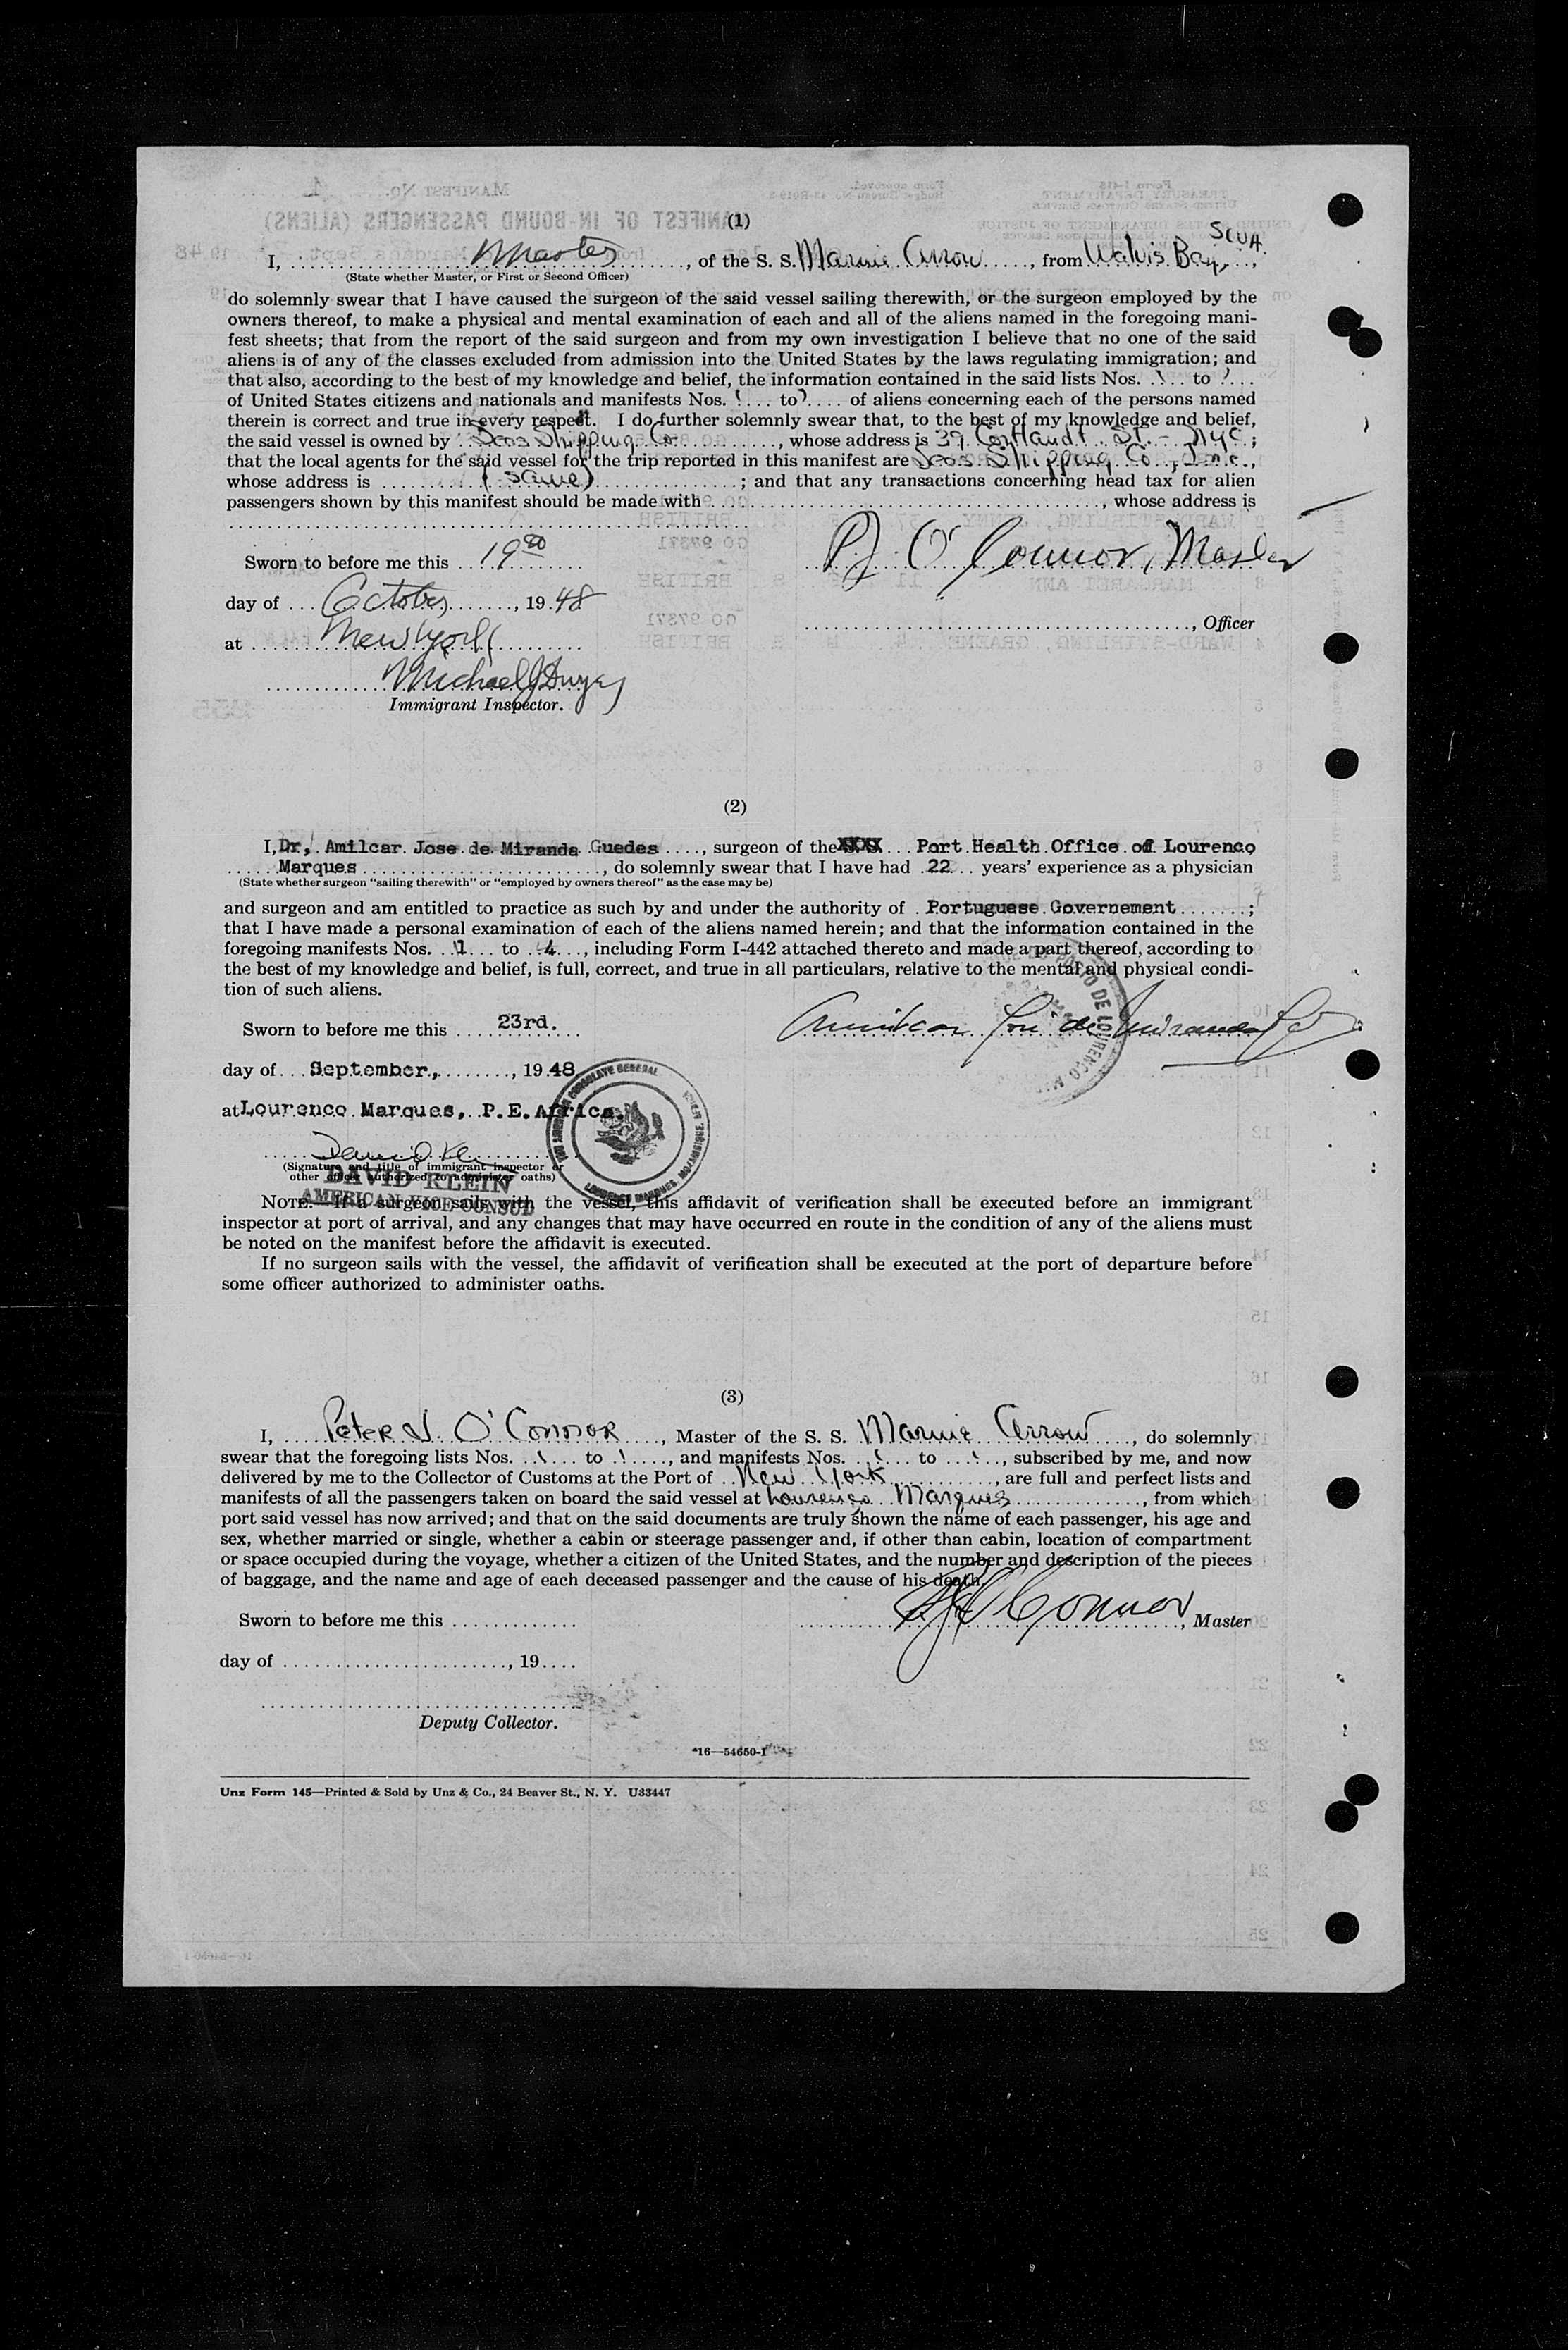 (1)
I, Master, of the S. S. Marine Arrow, from Walvis Bay, SWA.
(State whether Master, or First or Second Officer)
do solemnly swear that I have caused the surgeon of the said vessel sailing therewith, or the surgeon employed by the
owners thereof, to make a physical and mental examination of each and all of the aliens named in the foregoing mani-
fest sheets; that from the report of the said surgeon and from my own investigation I believe that no one of the said
aliens is of any of the classes excluded from admission into the United States by the laws regulating immigration; and
that also, according to the best of my knowledge and belief, the information contained in the said lists Nos. 1 to 1
of United States citizens and nationals and manifests Nos. 1 to 1 of aliens concerning each of the persons named
therein is correct and true in every respect. I do further solemnly swear that, to the best of my knowledge and belief,
the said vessel is owned by Seas Shipping Co., whose address is 39 Cortlandt St. - NYC;
that the local agents for the said vessel for the trip reported in this manifest are Seas Shipping Co., Inc.,
whose address is (same); and that any transactions concerning head tax for alien
passengers shown by this manifest should be made with, whose address is
Sworn to before me this 19
P J O'Connor, Master
day of October, 1948
, Officer
at New York
Michael J Dwyer
Immigrant Inspector.
(2)
I, Dr, Amilcar Jose de Miranda Guedes, surgeon of the XXXX Port Health Office of Lourenco
Marques, do solemnly swear that I have had 22 years' experience as a physician
(State whether surgeon "sailing therewith" or "employed by owners thereof" as the case may be)
and surgeon and am entitled to practice as such by and under the authority of Portuguese Governement;
that I have made a personal examination of each of the aliens named herein; and that the information contained in the
foregoing manifests Nos. 1 to 4, including Form I-442 attached thereto and made a part thereof, according to
the best of my knowledge and belief, is full, correct, and true in all particulars, relative to the mental and physical condi-
tion of such aliens.
PORTO DE LOURENCO
Sworn to before me this 23rd.
Amilcar José de Miranda
day of September, 1948
at Lourenco Marques, P.E.Africa.
AMERICAN CONSULATE GENERAL
LOURENCO MARQUES, MOZAMBIQUE
David Klein
(Signature and title of immigrant inspector or
other officer authorized to administer oaths)
DAVID KLEIN
AMERICAN VICE CONSUL
NOTE.—If a surgeon sails with the vessel, this affidavit of verification shall be executed before an immigrant
inspector at port of arrival, and any changes that may have occurred en route in the condition of any of the aliens must
be noted on the manifest before the affidavit is executed.
If no surgeon sails with the vessel, the affidavit of verification shall be executed at the port of departure before
some officer authorized to administer oaths.
(3)
I, Peter J. O'Connor, Master of the S. S. Marine Arrow, do solemnly
swear that the foregoing lists Nos. 1 to 1, and manifests Nos. 1 to 1, subscribed by me, and now
delivered by me to the Collector of Customs at the Port of New York, are full and perfect lists and
manifests of all the passengers taken on board the said vessel at Lourenco Marques, from which
port said vessel has now arrived; and that on the said documents are truly shown the name of each passenger, his age and
sex, whether married or single, whether a cabin or steerage passenger and, if other than cabin, location of compartment
or space occupied during the voyage, whether a citizen of the United States, and the number and description of the pieces
of baggage, and the name and age of each deceased passenger and the cause of his death.
Sworn to before me this
P J O'Connor, Master
day of, 19
Deputy Collector.
16—54650-1
Unz Form 145—Printed & Sold by Unz & Co., 24 Beaver St., N. Y. U33447